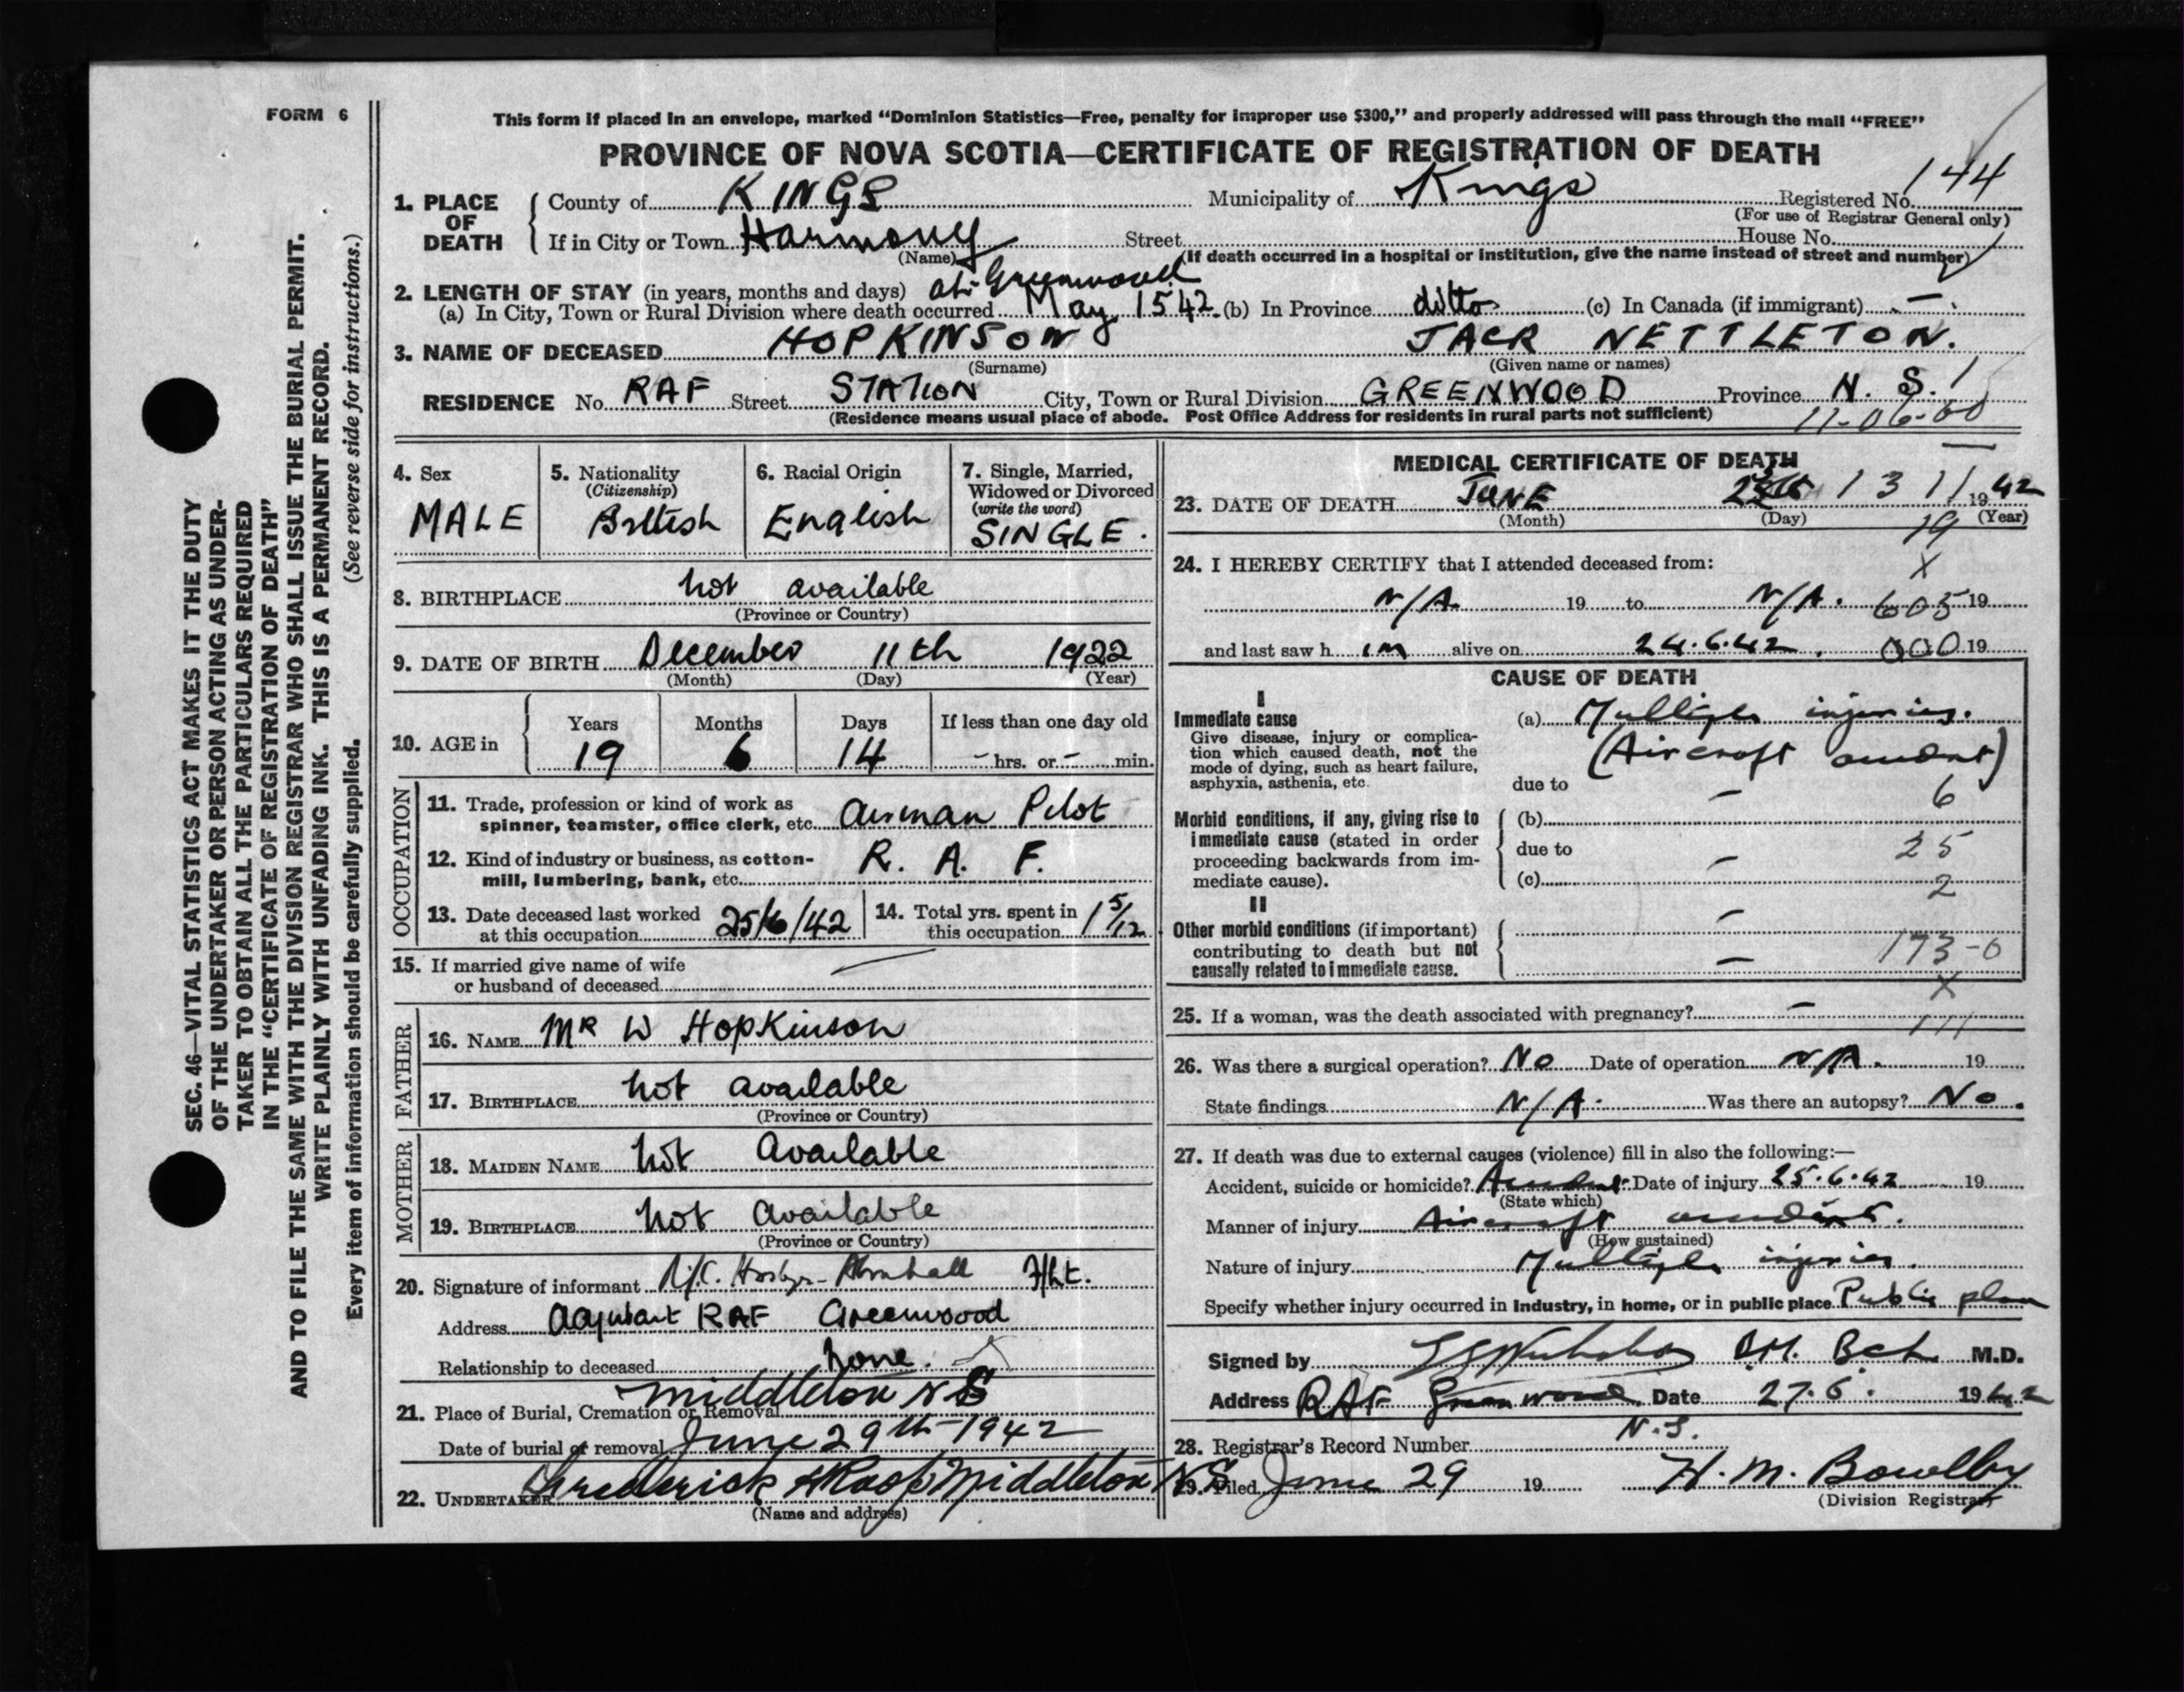 FORM 6
This form if placed in an envelope, marked “Dominion Statistics—Free, penalty for improper use $300,” and properly addressed will pass through the mail “FREE”
PROVINCE OF NOVA SCOTIA—CERTIFICATE OF REGISTRATION OF DEATH
144
1. PLACE OF DEATH { County of KINGS Municipality of Kings Registered No.
(For use of Registrar General only)
If in City or Town Harmony Street House No.
(Name) (If death occurred in a hospital or institution, give the name instead of street and number)
2. LENGTH OF STAY (in years, months and days) at Greenwood
(a) In City, Town or Rural Division where death occurred May 15 42 (b) In Province ditto (c) In Canada (if immigrant) —
3. NAME OF DECEASED HOPKINSON JACK NETTLETON.
(Surname) (Given name or names)
RESIDENCE No. RAF Street STATION City, Town or Rural Division GREENWOOD Province N. S.
(Residence means usual place of abode. Post Office Address for residents in rural parts not sufficient)
11-06-60
4. Sex MALE
5. Nationality (Citizenship) British
6. Racial Origin English
7. Single, Married, Widowed or Divorced (write the word) SINGLE.
8. BIRTHPLACE not available
(Province or Country)
9. DATE OF BIRTH December 11th 1922
(Month) (Day) (Year)
10. AGE in { Years 19 Months 6 Days 14 If less than one day old - hrs. or - min.
OCCUPATION
11. Trade, profession or kind of work as
spinner, teamster, office clerk, etc. Airman Pilot
12. Kind of industry or business, as cotton-
mill, lumbering, bank, etc. R. A. F.
13. Date deceased last worked
at this occupation 25/6/42
14. Total yrs. spent in
this occupation 1 5/12
15. If married give name of wife
or husband of deceased —
FATHER
16. NAME MR W Hopkinson
17. BIRTHPLACE not available
(Province or Country)
MOTHER
18. MAIDEN NAME not Available
19. BIRTHPLACE not Available
(Province or Country)
20. Signature of informant F/Lt.
Address Adjutant RAF Greenwood
Relationship to deceased None.
21. Place of Burial, Cremation or Removal Middleton N S
Date of burial or removal June 29th 1942
22. UNDERTAKER Frederick Middleton N S
(Name and address)
MEDICAL CERTIFICATE OF DEATH
23. DATE OF DEATH JUNE 1 3 1 1942
(Month) (Day) (Year)
19
24. I HEREBY CERTIFY that I attended deceased from:
X
N/A. 19 to N/A. 605 19
and last saw him alive on 24.6.42. 000 19
CAUSE OF DEATH
I
Immediate cause
Give disease, injury or complica-
tion which caused death, not the
mode of dying, such as heart failure,
asphyxia, asthenia, etc.
(a) Multiple injuries.
(Aircraft accident)
due to — 6
Morbid conditions, if any, giving rise to
immediate cause (stated in order
proceeding backwards from im-
mediate cause).
(b)
due to — 25
(c) 2
II
Other morbid conditions (if important)
contributing to death but not
causally related to immediate cause.
—
— 173-0
X
25. If a woman, was the death associated with pregnancy? —
111
26. Was there a surgical operation? No Date of operation N/A. 19
State findings N/A. Was there an autopsy? No.
27. If death was due to external causes (violence) fill in also the following:—
Accident, suicide or homicide? Accident Date of injury 25.6.42 19
(State which)
Manner of injury Aircraft accident.
(How sustained)
Nature of injury Multiple injuries.
Specify whether injury occurred in industry, in home, or in public place Public place
Signed by B.M. Bch M.D.
Address RAF Greenwood Date 27.6. 1942
N.S.
28. Registrar's Record Number
29. Filed June 29 19 H. M. Bowlby
(Division Registrar)
SEC. 46—VITAL STATISTICS ACT MAKES IT THE DUTY
OF THE UNDERTAKER OR PERSON ACTING AS UNDER-
TAKER TO OBTAIN ALL THE PARTICULARS REQUIRED
IN THE “CERTIFICATE OF REGISTRATION OF DEATH”
AND TO FILE THE SAME WITH THE DIVISION REGISTRAR WHO SHALL ISSUE THE BURIAL PERMIT.
WRITE PLAINLY WITH UNFADING INK. THIS IS A PERMANENT RECORD.
Every item of information should be carefully supplied. (See reverse side for instructions.)